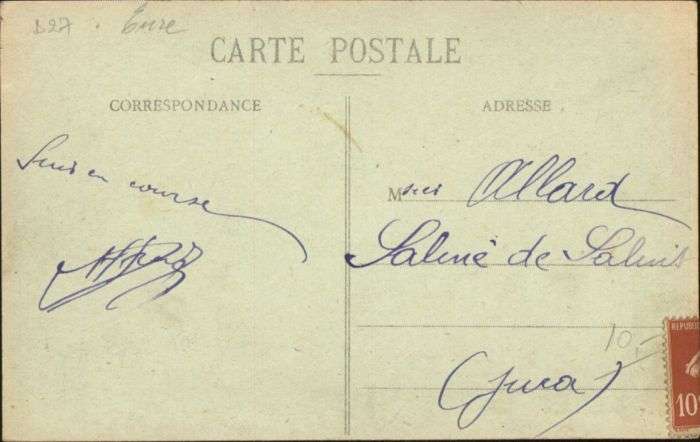 D27. Eure
CARTE POSTALE
CORRESPONDANCE
Suis en course
ADRESSE
Msieur Allard
Saline de Salins
(Jura)
10
REPUBLIQ
10